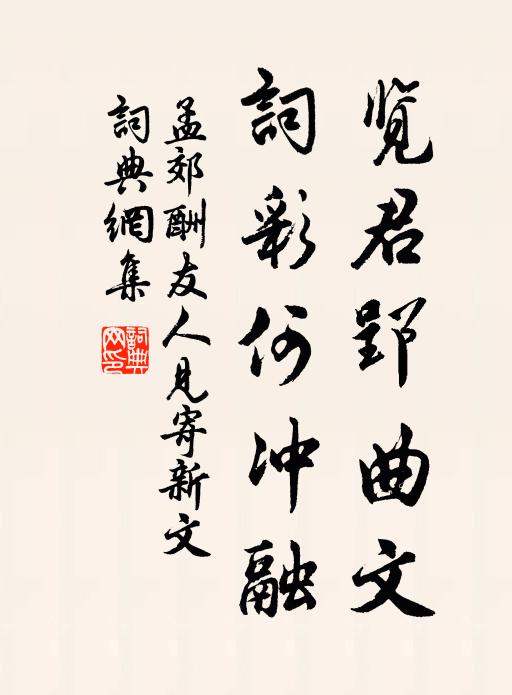 览君郢曲文
詞彩何冲融
孟郊酬友人見寄新文
詞典網集
詞典网印